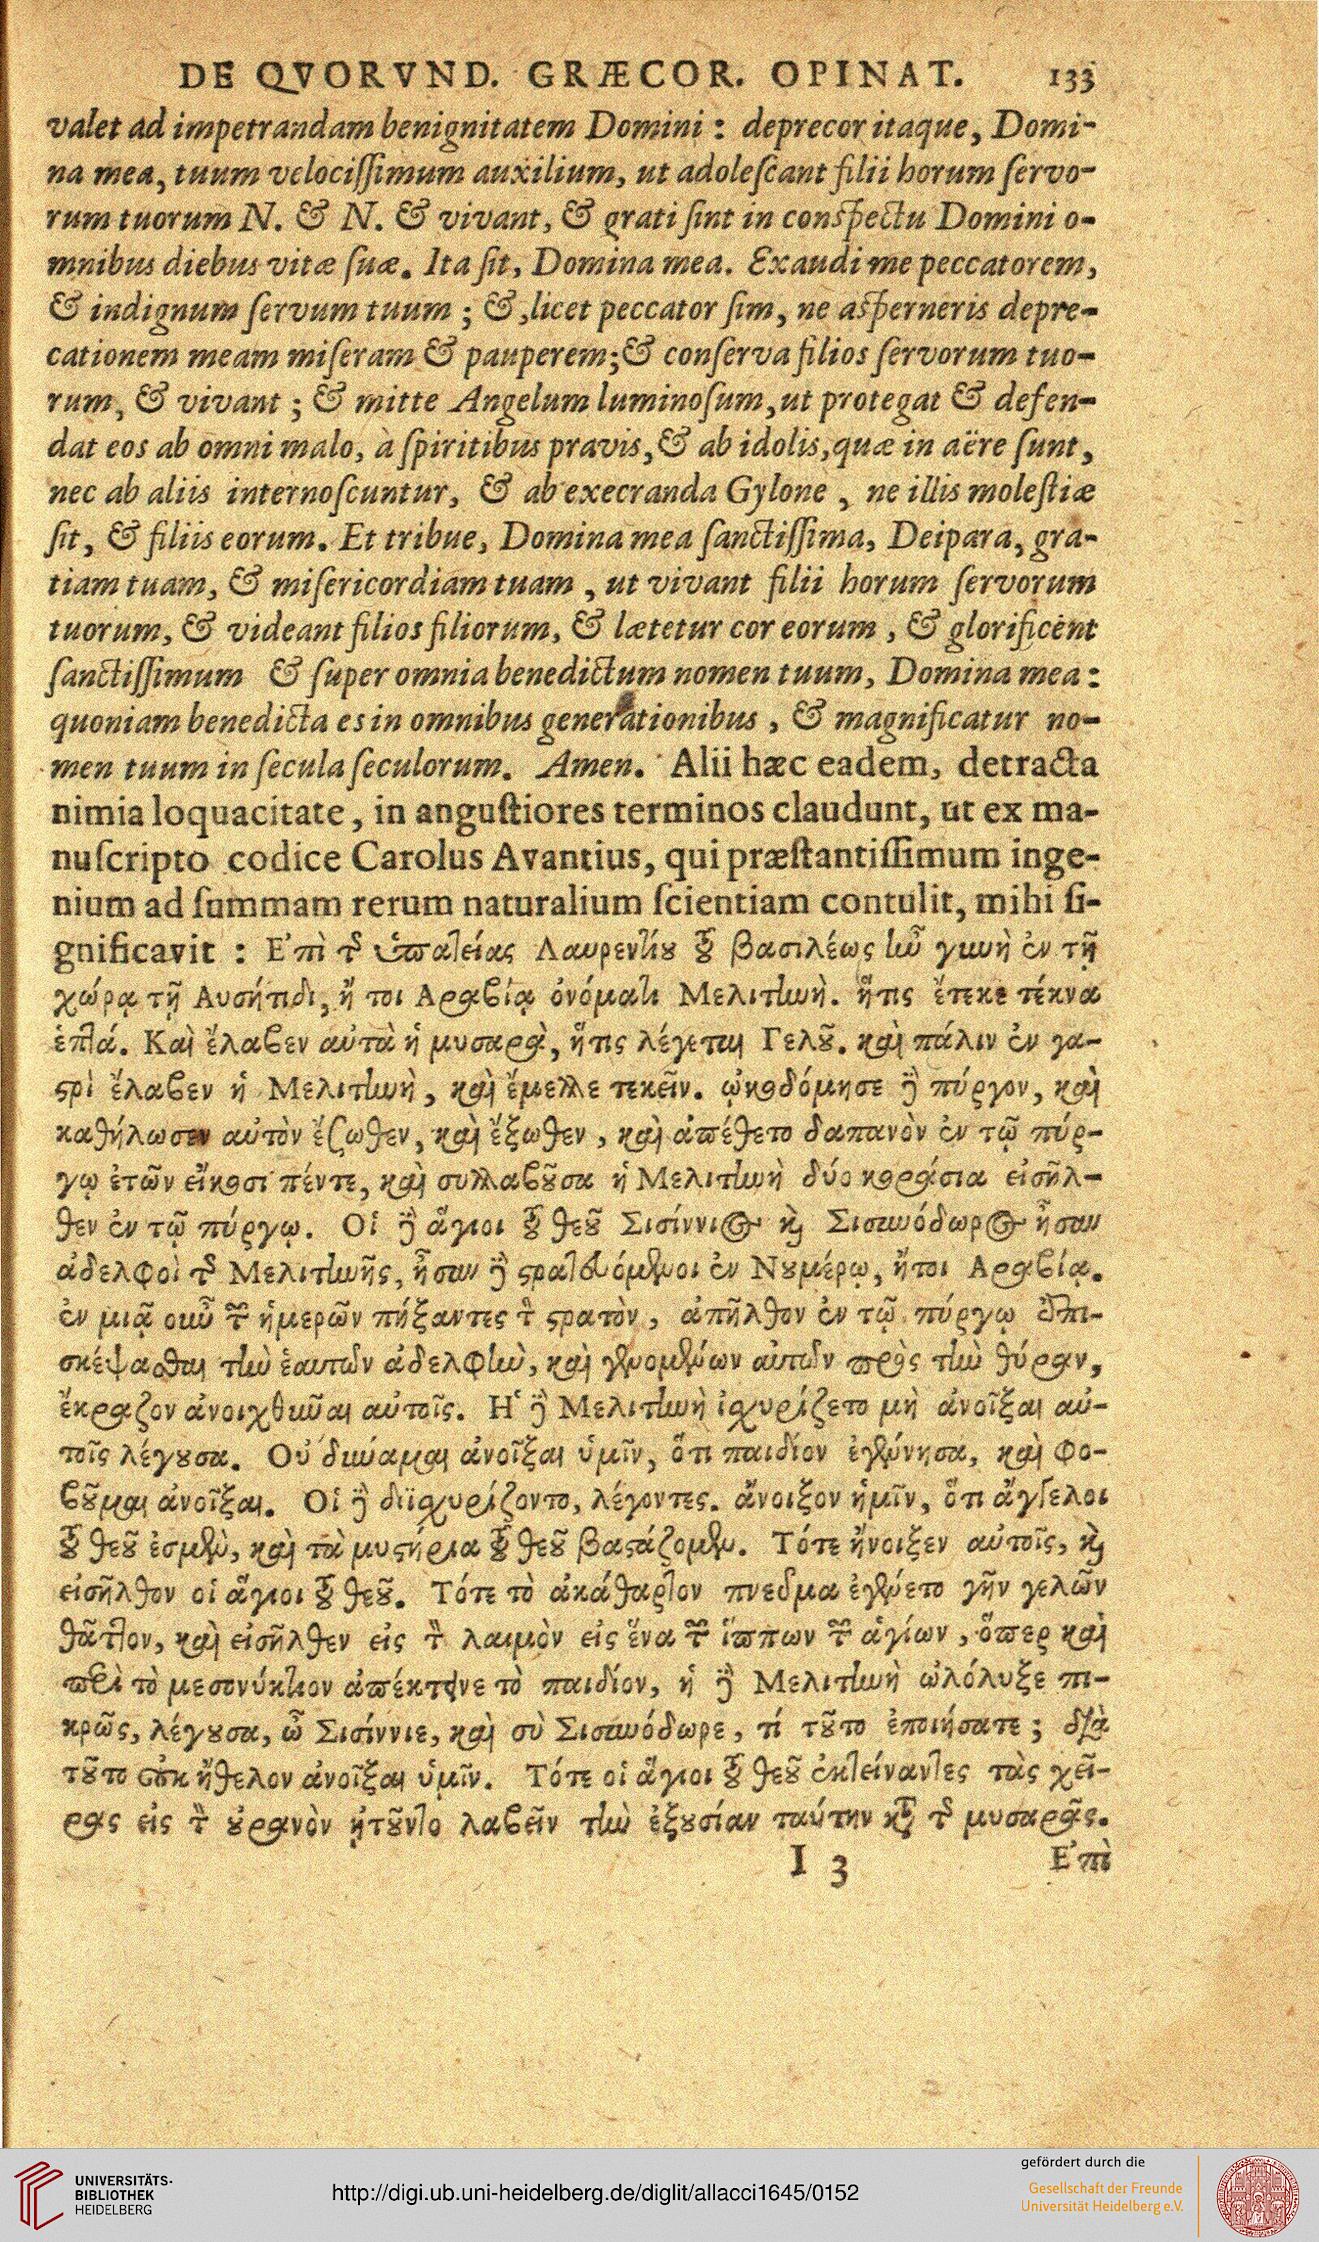 DE QVORVND. GRÆCOR. OPINAT. 133
valet ad impetrandam benignitatem Domini : deprecor itaque, Domi-
na mea, tuum velociſſimum auxilium, ut adoleſcant filii horum ſervo-
rum tuorum N. & N. & vivant, & grati ſint in conſpectu Domini o-
mnibus diebus vitæ ſuæ. Ita ſit, Domina mea. Exaudi me peccatorem,
& indignum ſervum tuum ; & ,licet peccator ſim, ne aſperneris depre-
cationem meam miſeram & pauperem;& conſerva filios ſervorum tuo-
rum, & vivant ; & mitte Angelum luminoſum,ut protegat & defen-
dat eos ab omni malo, à ſpiritibus pravis,& ab idolis,quæ in aëre ſunt,
nec ab aliis internoſcuntur, & ab execranda Gylone , ne illis moleſtiæ
ſit, & filiis eorum. Et tribue, Domina mea ſanctiſſima, Deipara, gra-
tiam tuam, & miſericordiam tuam , ut vivant filii horum ſervorum
tuorum, & videant filios filiorum, & lætetur cor eorum , & glorificent
ſanctiſſimum & ſuper omnia benedictum nomen tuum, Domina mea :
quoniam benedicta es in omnibus generationibus , & magnificatur no-
men tuum in ſecula ſeculorum. Amen. Alii hæc eadem, detracta
nimia loquacitate, in anguſtiores terminos claudunt, ut ex ma-
nuſcripto codice Carolus Avantius, qui præſtantiſſimum inge-
nium ad ſummam rerum naturalium ſcientiam contulit, mihi ſi-
gnificavit : Ἐπὶ τῆς ὑπατείας Λαυρεντίου τοῦ βασιλέως ἰῶ γυνὴ ἐν τῇ
χώρᾳ τῇ Αυσήτιδι, ἤ τοι Αραβίᾳ ὀνόματι Μελιτηνὴ. ἥτις ἔτεκε τέκνα
ἑπτά. Καὶ ἔλαβεν αὐτὰ ἡ μυσαρὰ, ἥτις λέγεται Γελοῦ. καὶ πάλιν ἐν γα-
στρὶ ἔλαβεν ἡ Μελιτηνὴ, καὶ ἔμελλε τεκεῖν. ᾠκοδόμησε δὲ πύργον, καὶ
καθήλωσεν αὐτὸν ἔζωθεν, καὶ ἔξωθεν , καὶ ἀπέθετο δαπανὸν ἐν τῷ πύρ-
γῳ ἐτῶν εἴκοσι πέντε, καὶ συλλαβοῦσα ἡ Μελιτηνὴ δύο κοράσια εἰσῆλ-
θεν ἐν τῷ πύργῳ. Οἱ δὲ ἅγιοι τοῦ θεοῦ Σισίννιος καὶ Σισυνόδωρος ἦσαν
ἀδελφοὶ τῆς Μελιτηνῆς, ἦσαν δὲ στρατευόμενοι ἐν Νουμέρῳ, ἤτοι Αραβίᾳ.
ἐν μιᾷ οὖν τῶν ἡμερῶν πήξαντες τὸν στρατὸν , ἀπῆλθον ἐν τῷ πύργῳ ἐπι-
σκέψασθαι τὴν ἑαυτῶν ἀδελφὴν, καὶ γενομένων αὐτῶν πρὸς τὴν θύραν,
ἔκραζον ἀνοιχθῆναι αὐτοῖς. Ἡ δὲ Μελιτηνὴ ἰσχυρίζετο μὴ ἀνοῖξαι αὐ-
τοῖς λέγουσα. Οὐ δύναμαι ἀνοῖξαι ὑμῖν, ὅτι παιδίον ἐγέννησα, καὶ φο-
βοῦμαι ἀνοῖξαι. Οἱ δὲ διϊσχυρίζοντο, λέγοντες. ἄνοιξον ἡμῖν, ὅτι ἄγγελοι
τοῦ θεοῦ ἐσμὲν, καὶ τὰ μυστήρια τοῦ θεοῦ βαστάζομεν. Τότε ἤνοιξεν αὐτοῖς, καὶ
εἰσῆλθον οἱ ἅγιοι τοῦ θεοῦ. Τότε τὸ ἀκάθαρτον πνεῦμα ἐγένετο γῆν γελῶν
θᾶττον, καὶ εἰσῆλθεν εἰς τὸν λαιμὸν εἰς ἕνα τῶν ἵππων τῶν ἁγίων , ὅπερ καὶ
περὶ τὸ μεσονύκτιον ἀπέκτεινε τὸ παιδίον, ἡ δὲ Μελιτηνὴ ὠλόλυξε πι-
κρῶς, λέγουσα, ὦ Σισίννιε, καὶ σὺ Σισυνόδωρε, τί τοῦτο ἐποιήσατε ; διὰ
τοῦτο οὐκ ἤθελον ἀνοῖξαι ὑμῖν. Τότε οἱ ἅγιοι τοῦ θεοῦ ἐκτείναντες τὰς χεῖ-
ρας εἰς τὸν οὐρανὸν ᾐτοῦντο λαβεῖν τὴν ἐξουσίαν ταύτην κατὰ τῆς μυσαρᾶς.
I 3 Ἐπὶ
UNIVERSITÄTS-
BIBLIOTHEK
HEIDELBERG
http://digi.ub.uni-heidelberg.de/diglit/allacci1645/0152
gefördert durch die
Gesellschaft der Freunde
Universität Heidelberg e.V.